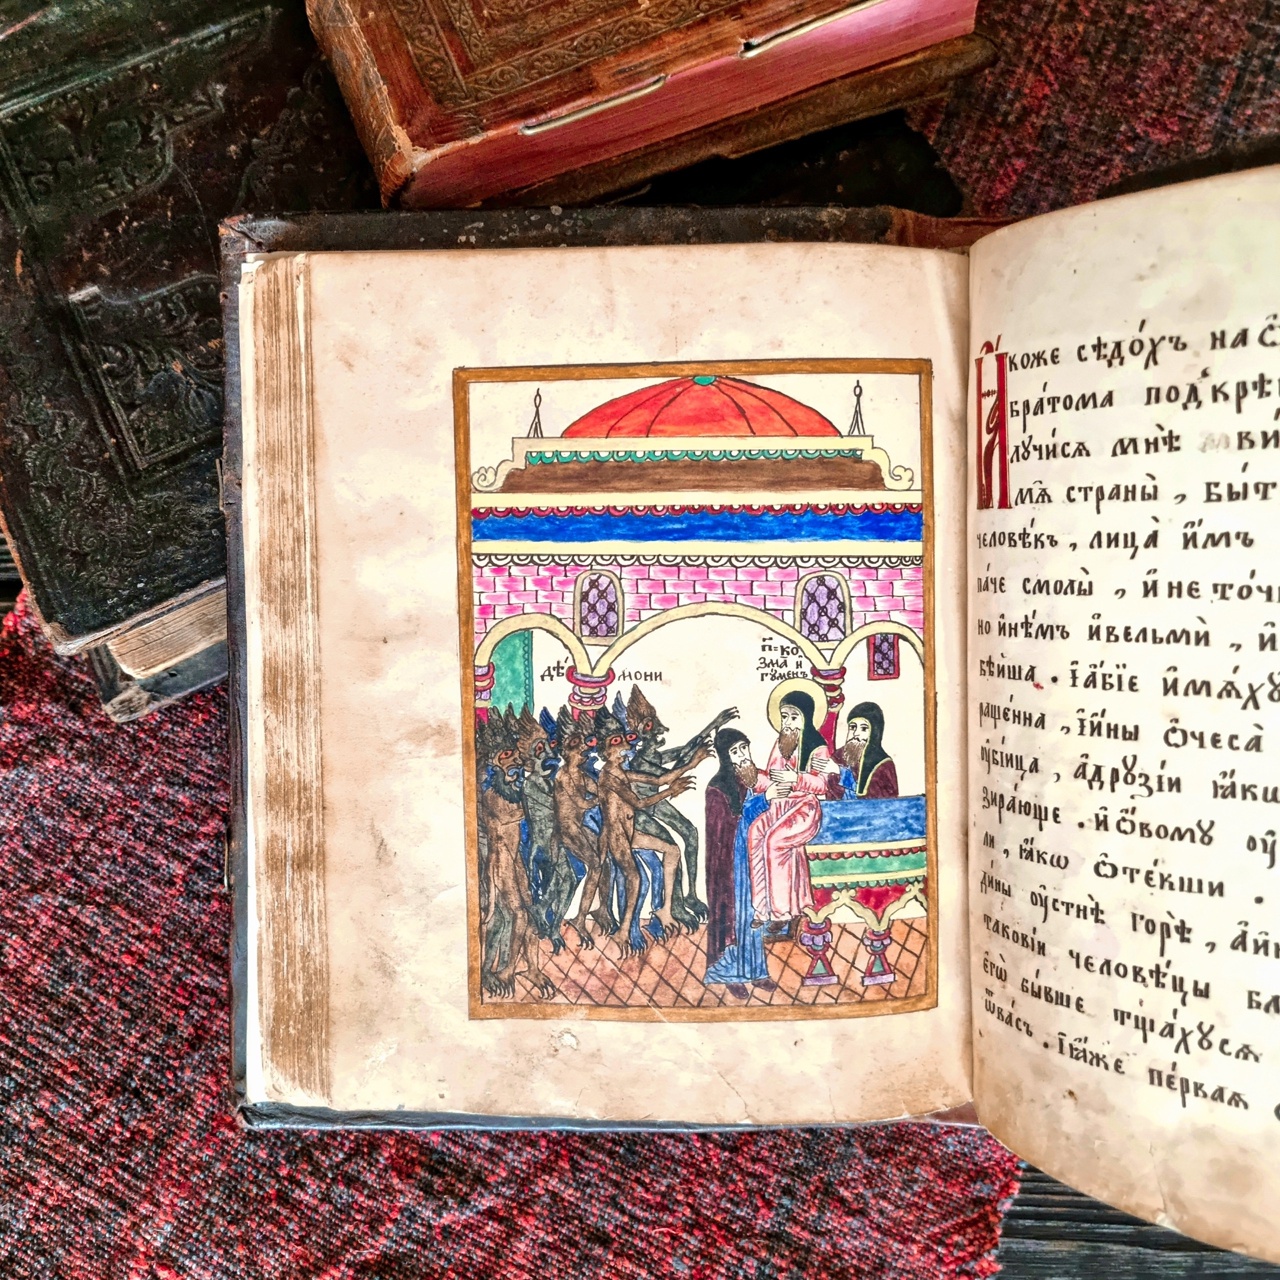 дѣ́мони
п҃=ко
зма и
гꙋменъ
Ꙗ́коже сѣдо́хъ на
бра́тома под̾крѣ
лꙋчи́сѧ мнѣ̀ ви
мѧ̀ страны̀ , бы́т
человѣ́къ , лица̀ и҆̀мъ
па́че смолы̀ , и҆ не то́чи
но и҆нѣ́мъ и҆вельмѝ , и҆
бѣ́йша . і҆ꙗ҆́вїе и҆мѧ́хꙋ
раще́нна , і҆и҆́ны ѻ҆чеса̀
ᲂу҆бі́ица , а҆дрꙋзі́и ꙗ҆́кѡ
зира́юще . и҆ ѻ҆́вомꙋ ᲂу҆
ли , ꙗ҆́кѡ ѻ҆те́кши .
ди́ны ᲂу҆стнѣ̀ го́рѣ , а҆и҆
такові́и человѣ́цы бл
є҆гѡ̀ бы́вше тща́хꙋсѧ
ѿва́съ . і҆ꙗ҆́же пе́рваѧ